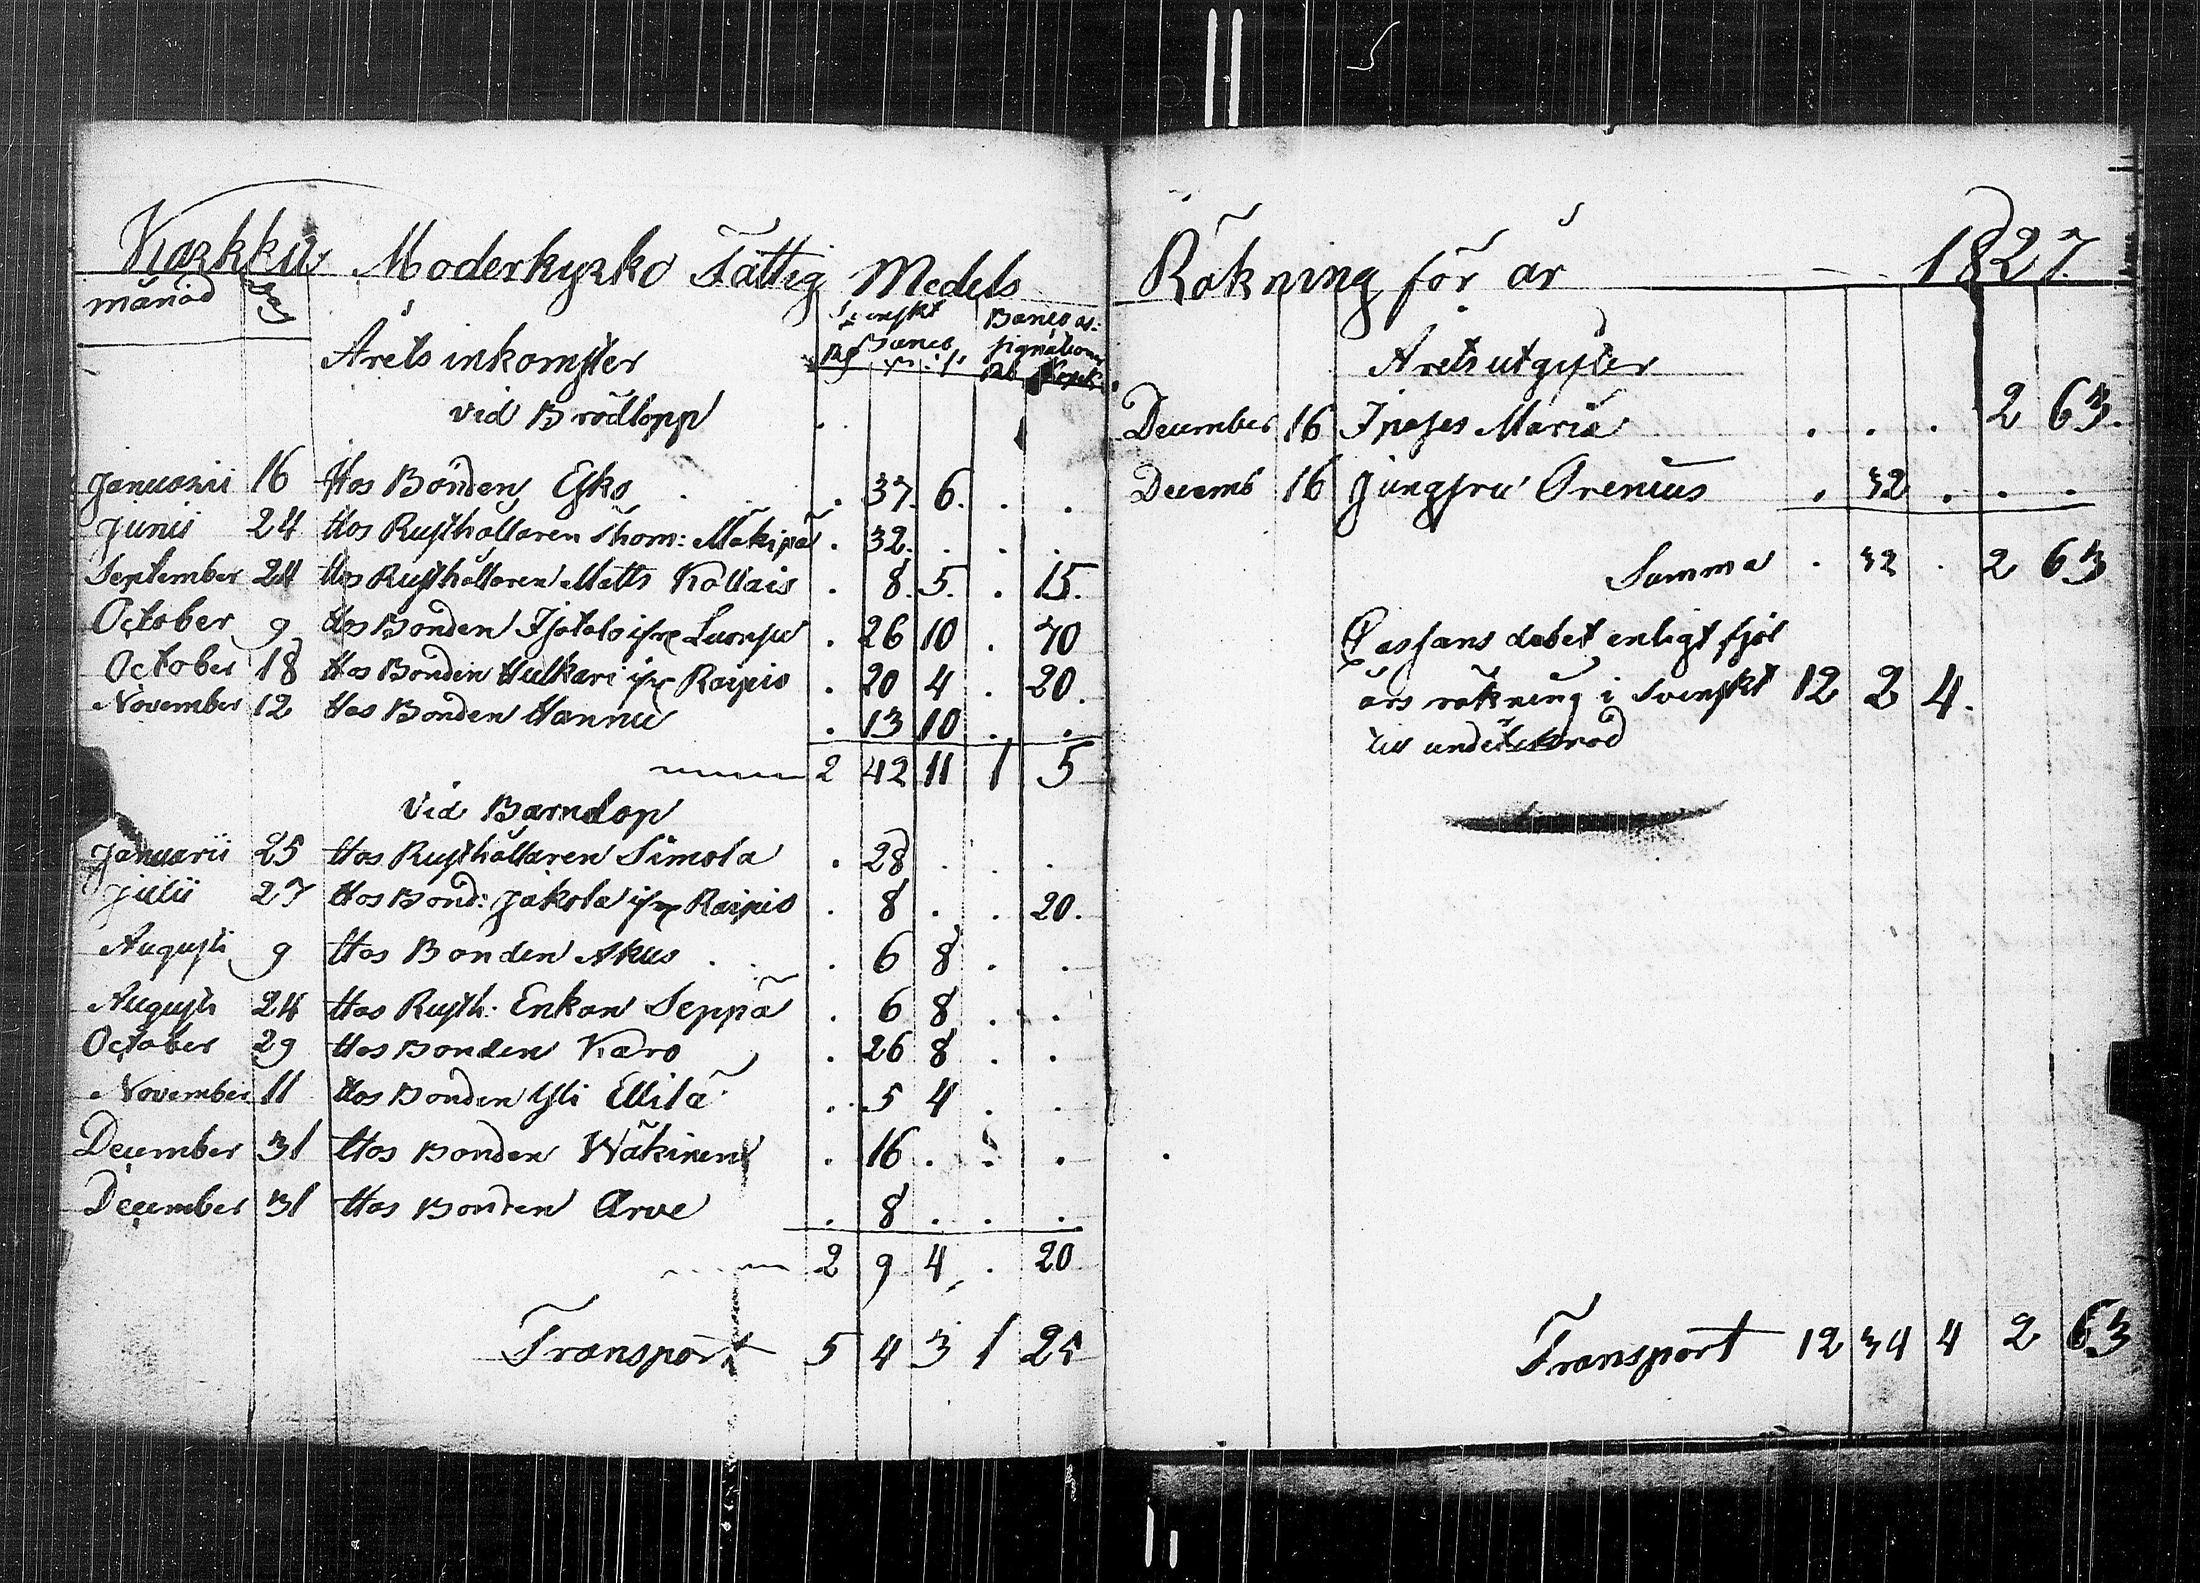 Karkku Moderkyrko Fattig Medels
månad dag
Årets inkomster
Svenskt Banco Banco assignationer
Rd s. r. Rb Kopek
vid Brödlopp
Januarii 16 Hos Bonden Esko . 37. 6. . .
Junii 24 Hos Rusthållaren Thom: Mäkipä . 32. . . .
September 24 Hos Rusthållaren Matts Kallais . 8. 5. . 15.
October 9 Hos Bonden Isotalo ifr. . 26 10 . 70
October 18 Hos Bonden Hulkari ifr Raipio . 20 4 . 20.
November 12 Hos Bonden Hannu . 13 10 . .
2 42 11 1 5
Vid Barndop
Januarii 25 Hos Rusthållaren Simola . 28 . . .
Julii 27 Hos Bond: Jakola ifr Raipio . 8 . . 20.
Augusti 9 Hos Bonden Akus . 6 8 . .
Augusti 24 Hos Rusth. Enkan Seppä . 6 8 . .
October 29 Hos Bonden Karo . 26 8 . .
November 11 Hos Bonden Yli Ellilä . 5 4 . .
December 31 Hos Bonden Wäkinen . 16 . . .
December 31 Hos Bonden Arve . 8 . . .
2 9 4 . 20
Transport 5 4 3 1 25
Räkning för år 1827.
Årets utgifter
December 16 Maria . . . 2 63.
Decemb 16 Jungfru Orenius . 32 . . .
Summa . 32 . 2 63
Cassans debet enligt fjol
års räkning i Svenskt 12 2 4.
till
Transport 12 34 4 2 63